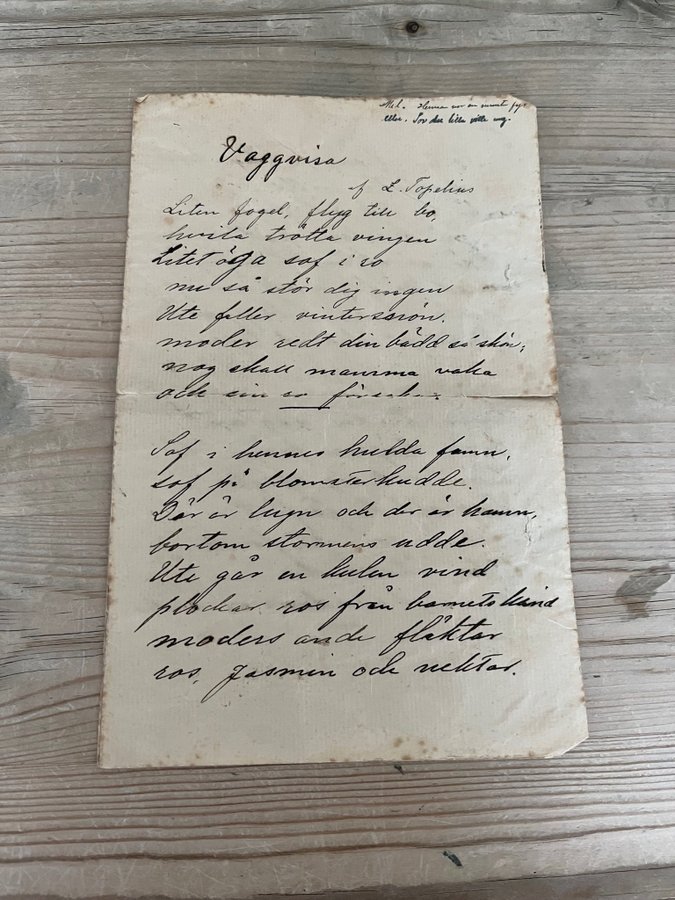 Mel.
eller. Sov du lilla vide ung.
Vaggvisa
af Z. Topelius
Liten fogel, flyg till bo,
hvila trötta vingen
Litet öga sof i ro
nu så stör dig ingen
Ute faller vintersnön.
moder redt din bädd så skön;
nog skall mamma vaka
och sin ro försaka.
Sof i hennes hulda famn,
sof på blomsterkudde.
Där är lugn och der är hamn,
bortom stormens udde.
Ute går en kulen vind
plockar ros från barnets kind
moders ande fläktar
ros, Jasmin och nektar.